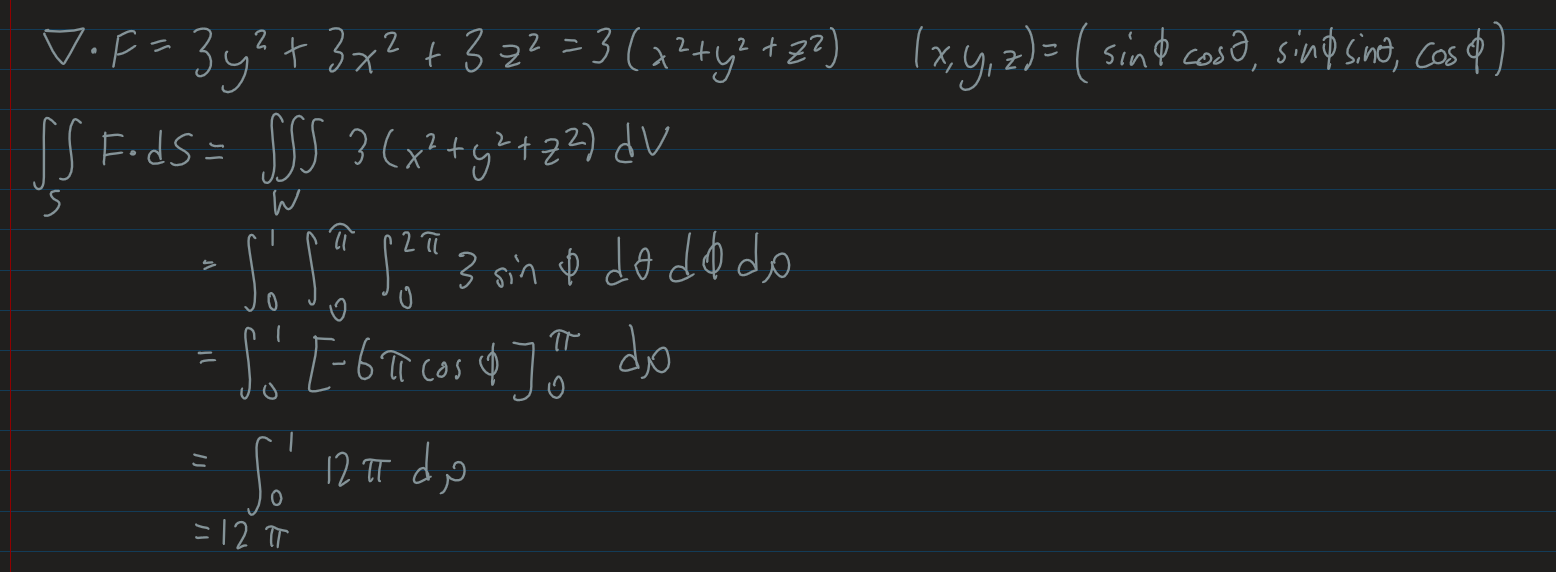 ∇·F = 3y² + 3x² + 3z² = 3(x²+y²+z²) (x,y,z)=(sinϕ cosθ, sinϕ sinθ, cosϕ)
∬_S F·dS = ∭_W 3(x²+y²+z²) dV
= ∫₀¹ ∫₀^π ∫₀^2π 3 sin ϕ dθ dϕ dρ
= ∫₀¹ [-6π cos ϕ]₀^π dρ
= ∫₀¹ 12π dρ
=12 π